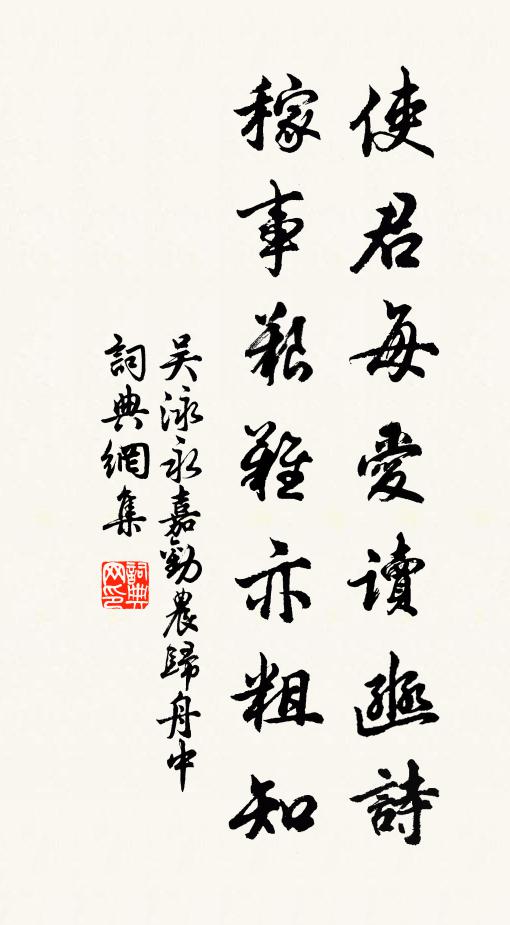 使君每愛讀豳詩
稼事艱難亦粗知
吴泳永嘉勸農歸舟中
詞典網集
詞典网印